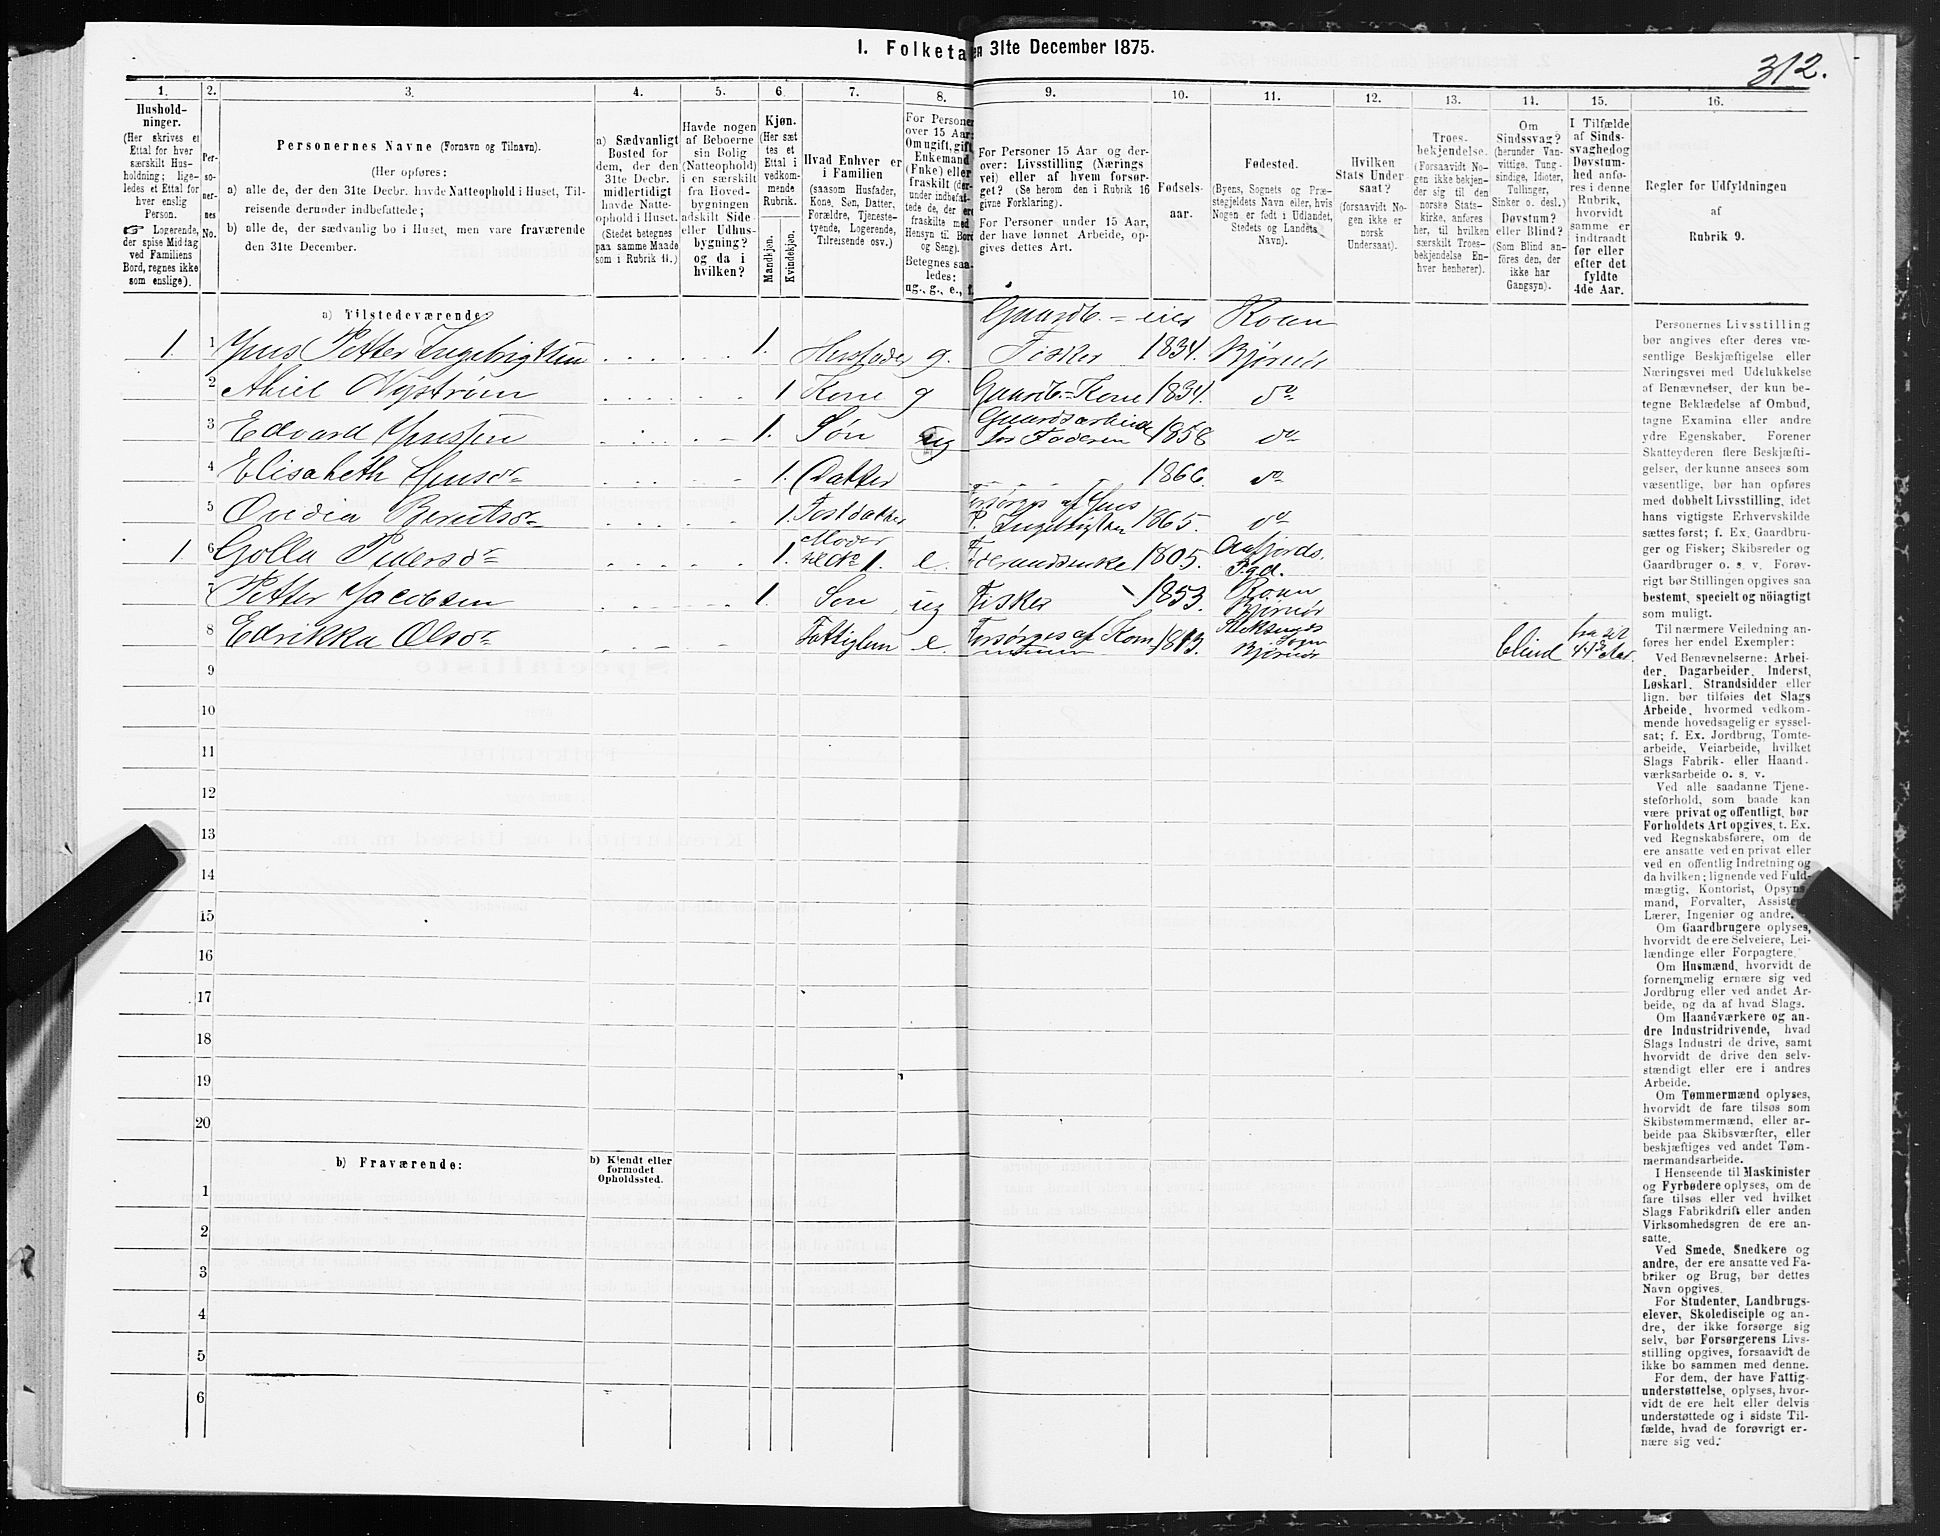 1. Folketa
en 31te December 1875.
312.
1. 2. 3. 4. 5. 6. 7. 8. 9. 10. 11. 12. 13. 14. 15. 16.
Hushold-
ninger.
(Her skrives et
Ettal for hver
særskilt Hus-
holdning; lige-
ledes et Ettal for
hver enslig
Person.
☞ Logerende,
der spise Middag
ved Familiens
Bord, regnes ikke
som enslige).
Per-
so-
ner-
nes
No.
Personernes Navne (Fornavn og Tilnavn).
(Her opføres:
a) alle de, der den 31te Decbr. havde Natteophold i Huset, Til-
reisende derunder indbefattede;
b) alle de, der sædvanlig bo i Huset, men vare fraværende
den 31te December.
a) Sædvanligt
Bosted for
dem, der den
31te Decbr.
midlertidigt
havde Natte-
ophold i Huset.
(Stedet betegnes
paa samme Maade
som i Rubrik 11.)
Havde nogen
af Beboerne
sin Bolig
(Natteophold)
i en særskilt
fra Hoved-
bygningen
adskilt Side-
eller Udhus-
bygning?
og da i
hvilken?
Kjøn.
(Her sæt-
tes et
Ettal i
vedkom-
mende
Rubrik.
Mandkjøn.
Kvindekjøn.
Hvad Enhver er
i Familien
(saasom Husfader,
Kone, Søn, Datter,
Forældre, Tjeneste-
tyende, Logerende,
Tilreisende osv.)
For Personer
over 15 Aar:
Om ugift, gift,
Enkemand
(Enke) eller
fraskilt (der-
under indbefat-
tede de, der ere
fraskilte med
Hensyn til Bord
og Seng).
Betegnes saa-
ledes:
ug., g., e., f.
For Personer 15 Aar og der-
over: Livsstilling (Nærings-
vei) eller af hvem forsør-
get? (Se herom den i Rubrik 16
givne Forklaring).
For Personer under 15 Aar,
der have lønnet Arbeide, op-
gives dettes Art.
Fødsels-
aar.
Fødested.
(Byens, Sognets og Præ-
stegjeldets Navn eller, hvis
Nogen er født i Udlandet,
Stedets og Landets
Navn).
Hvilken
Stats Under-
saat?
(forsaavidt No-
gen ikke er
norsk
Undersaat).
Troes-
bekjendelse.
(Forsaavidt No-
gen ikke bekjen-
der sig til den
norske Stats-
kirke, anføres
her, til hvilken
særskilt Troes-
bekjendelse En-
hver henhører).
Om
Sindssvag?
(herunder Van-
vittige, Tung-
sindige, Idioter,
Tullinger,
Sinker o. desl.)
Døvstum?
eller Blind?
(Som Blind an-
føres den, der
ikke har
Gangsyn).
I Tilfælde
af Sinds-
svaghed og
Døvstum-
hed anfø-
res i denne
Rubrik,
hvorvidt
samme er
indtraadt
før eller
efter det
fyldte
4de Aar.
Regler for Udfyldningen
af
Rubrik 9.
a) Tilstedeværende:
Gaardb. = eier Roan
1. 1 Jens Petter Ingebrigtsen 1. Husfader g. Fisker 1834. Bjørnør
2 Abiel Nystrøm 1 Kone g Gaardb.=Kone 1834. do
Gaardsarbeide
3 Edvard Jensen 1. Søn ug for Faderen 1858 do
4 Elisabeth Jensdr 1. Datter 1866. do
Forsørges af Jens
5 Ovidia Berntsdr 1. Fostdatter P. Ingebrigtsen 1865. do
Moder Aafjords
1 6 Golla Pedersdr 1. til No 1. e. Føderaadsenke 1805. Pgd.
7 Petter Jacobsen 1. Søn ug Fisker 1853. Roan
Bjørnør
8 Edrikka Olsdr Fattiglem e. Forsørges af Kom- 1813. Stoksunds
Sogn
Bjørnør
blind fra sit
44de Aar.
9
10
11
12
13
14
15
16
17
18
19
20
b) Fraværende:
b) Kjendt eller
formodet
Opholdssted.
1
2
3
4
5
6
Personernes Livsstilling
bør angives efter deres væ-
sentlige Beskjæftigelse eller
Næringsvei med Udelukkelse
af Benævnelser, der kun be-
tegne Beklædelse af Ombud,
tagne Examina eller andre
ydre Egenskaber. Forener
Skatteyderen flere Beskjæfti-
gelser, der kunne ansees som
væsentlige, bør han opføres
med dobbelt Livsstilling, idet
hans vigtigste Erhvervskilde
sættes først; f. Ex. Gaardbru-
ger og Fisker; Skibsreder og
Gaardbruger o. s. v. Forøv-
rigt bør Stillingen opgives saa
bestemt, specielt og nöiagtigt
som muligt.
Til nærmere Veiledning an-
føres her endel Exempler:
Ved Benævnelserne: Arbei-
der, Dagarbeider, Inderst,
Løskarl, Strandsidder eller
lign. bør tilføies det Slags
Arbeide, hvormed vedkom-
mende hovedsagelig er syssel-
sat; f. Ex. Jordbrug, Tomte-
arbeide, Veiarbeide, hvilket
Slags Fabrik- eller Haand-
værksarbeide o. s. v.
Ved alle saadanne Tjene-
steforhold, som baade kan
være privat og offentligt, bør
Forholdets Art opgives, t. Ex.
ved Regnskabsførere, om de
ere ansatte ved en privat eller
ved en offentlig Indretning og
da hvilken; lignende ved Fuld-
mægtig, Kontorist, Opsyns-
mand, Forvalter, Assistent,
Lærer, Ingeniør og andre.
Om Gaardbrugere oplyses,
hvorvidt de ere Selveiere, Lei-
lændinge eller Forpagtere.
Om Husmænd, hvorvidt de
fornemmelig ernære sig ved
Jordbrug eller ved andet Ar-
beide, og da af hvad Slags.
Om Haandværkere og an-
dre Industridrivende, hvad
Slags Industri de drive, samt
hvorvidt de drive den selv-
stændigt eller ere i andres
Arbeide.
Om Tømmermænd oplyses,
hvorvidt de fare tilsøs som
Skibstømmermænd, eller ar-
beide paa Skibsværfter, eller
beskjæftiges ved andet Tøm-
mermandsarbeide.
I Henseende til Maskinister
og Fyrbødere oplyses, om de
fare tilsøs eller ved hvilket
Slags Fabrikdrift eller anden
Virksomhedsgren de ere an-
satte.
Ved Smede, Snedkere og
andre, der ere ansatte ved Fa-
briker og Brug, bør dettes
Navn opgives.
For Studenter, Landbrugs-
elever, Skoledisciple og an-
dre, der ikke forsørge sig
selv, bør Forsørgerens Livs-
stilling opgives, forsaavidt de
ikke bo sammen med denne.
For dem, der have Fattig-
understøttelse, oplyses, hvor-
vidt de ere helt eller delvis
understøttede og i sidste Til-
fælde, hvad de forøvrigt er-
nære sig ved.